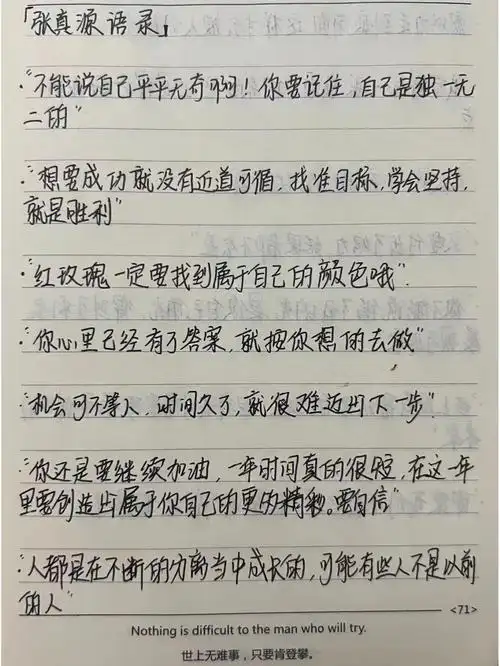 「张真源语录」
·“不能说自己平平无奇啊！你要记住，自己是独一无
二的”
·“想要成功就没有近道可循，找准目标，学会坚持，
就是胜利”
·“红玫瑰一定要找到属于自己的颜色哦”
·“你心里已经有了答案，就按你想的去做”
·“机会可不等人，时间久了，就很难迈出下一步”
·“你还是要继续加油，一年时间真的很短，在这一年
里要创造出属于你自己的更多精彩。要自信”
·“人都是在不断的分离当中成长的，可能有些人不是以前
的人”
<71>
Nothing is difficult to the man who will try.
世上无难事，只要肯登攀。